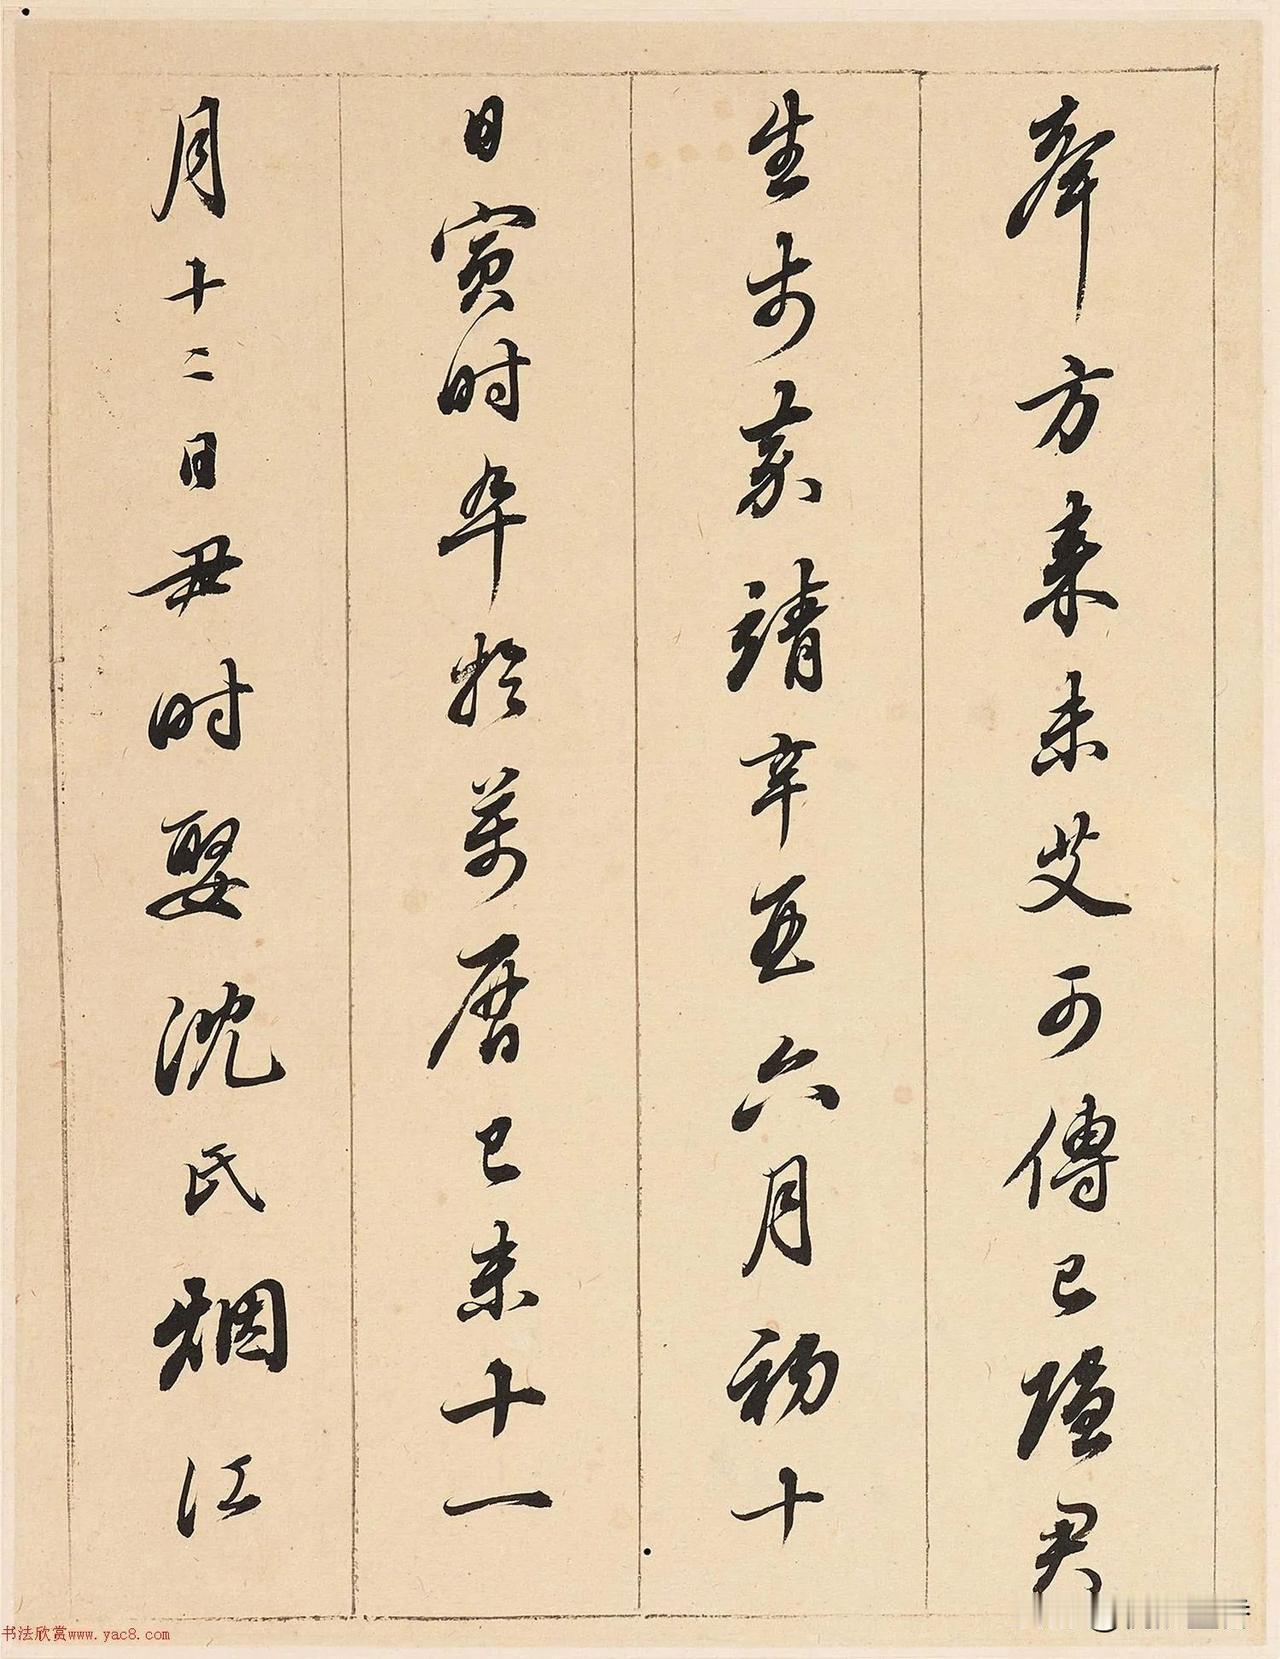 奉方来未艾可傳已隱君
生於嘉靖辛酉六月初十
日寅时卒於萬曆己未十一
月十二日丑时娶沈氏烟江
书法欣赏www.yac8.com